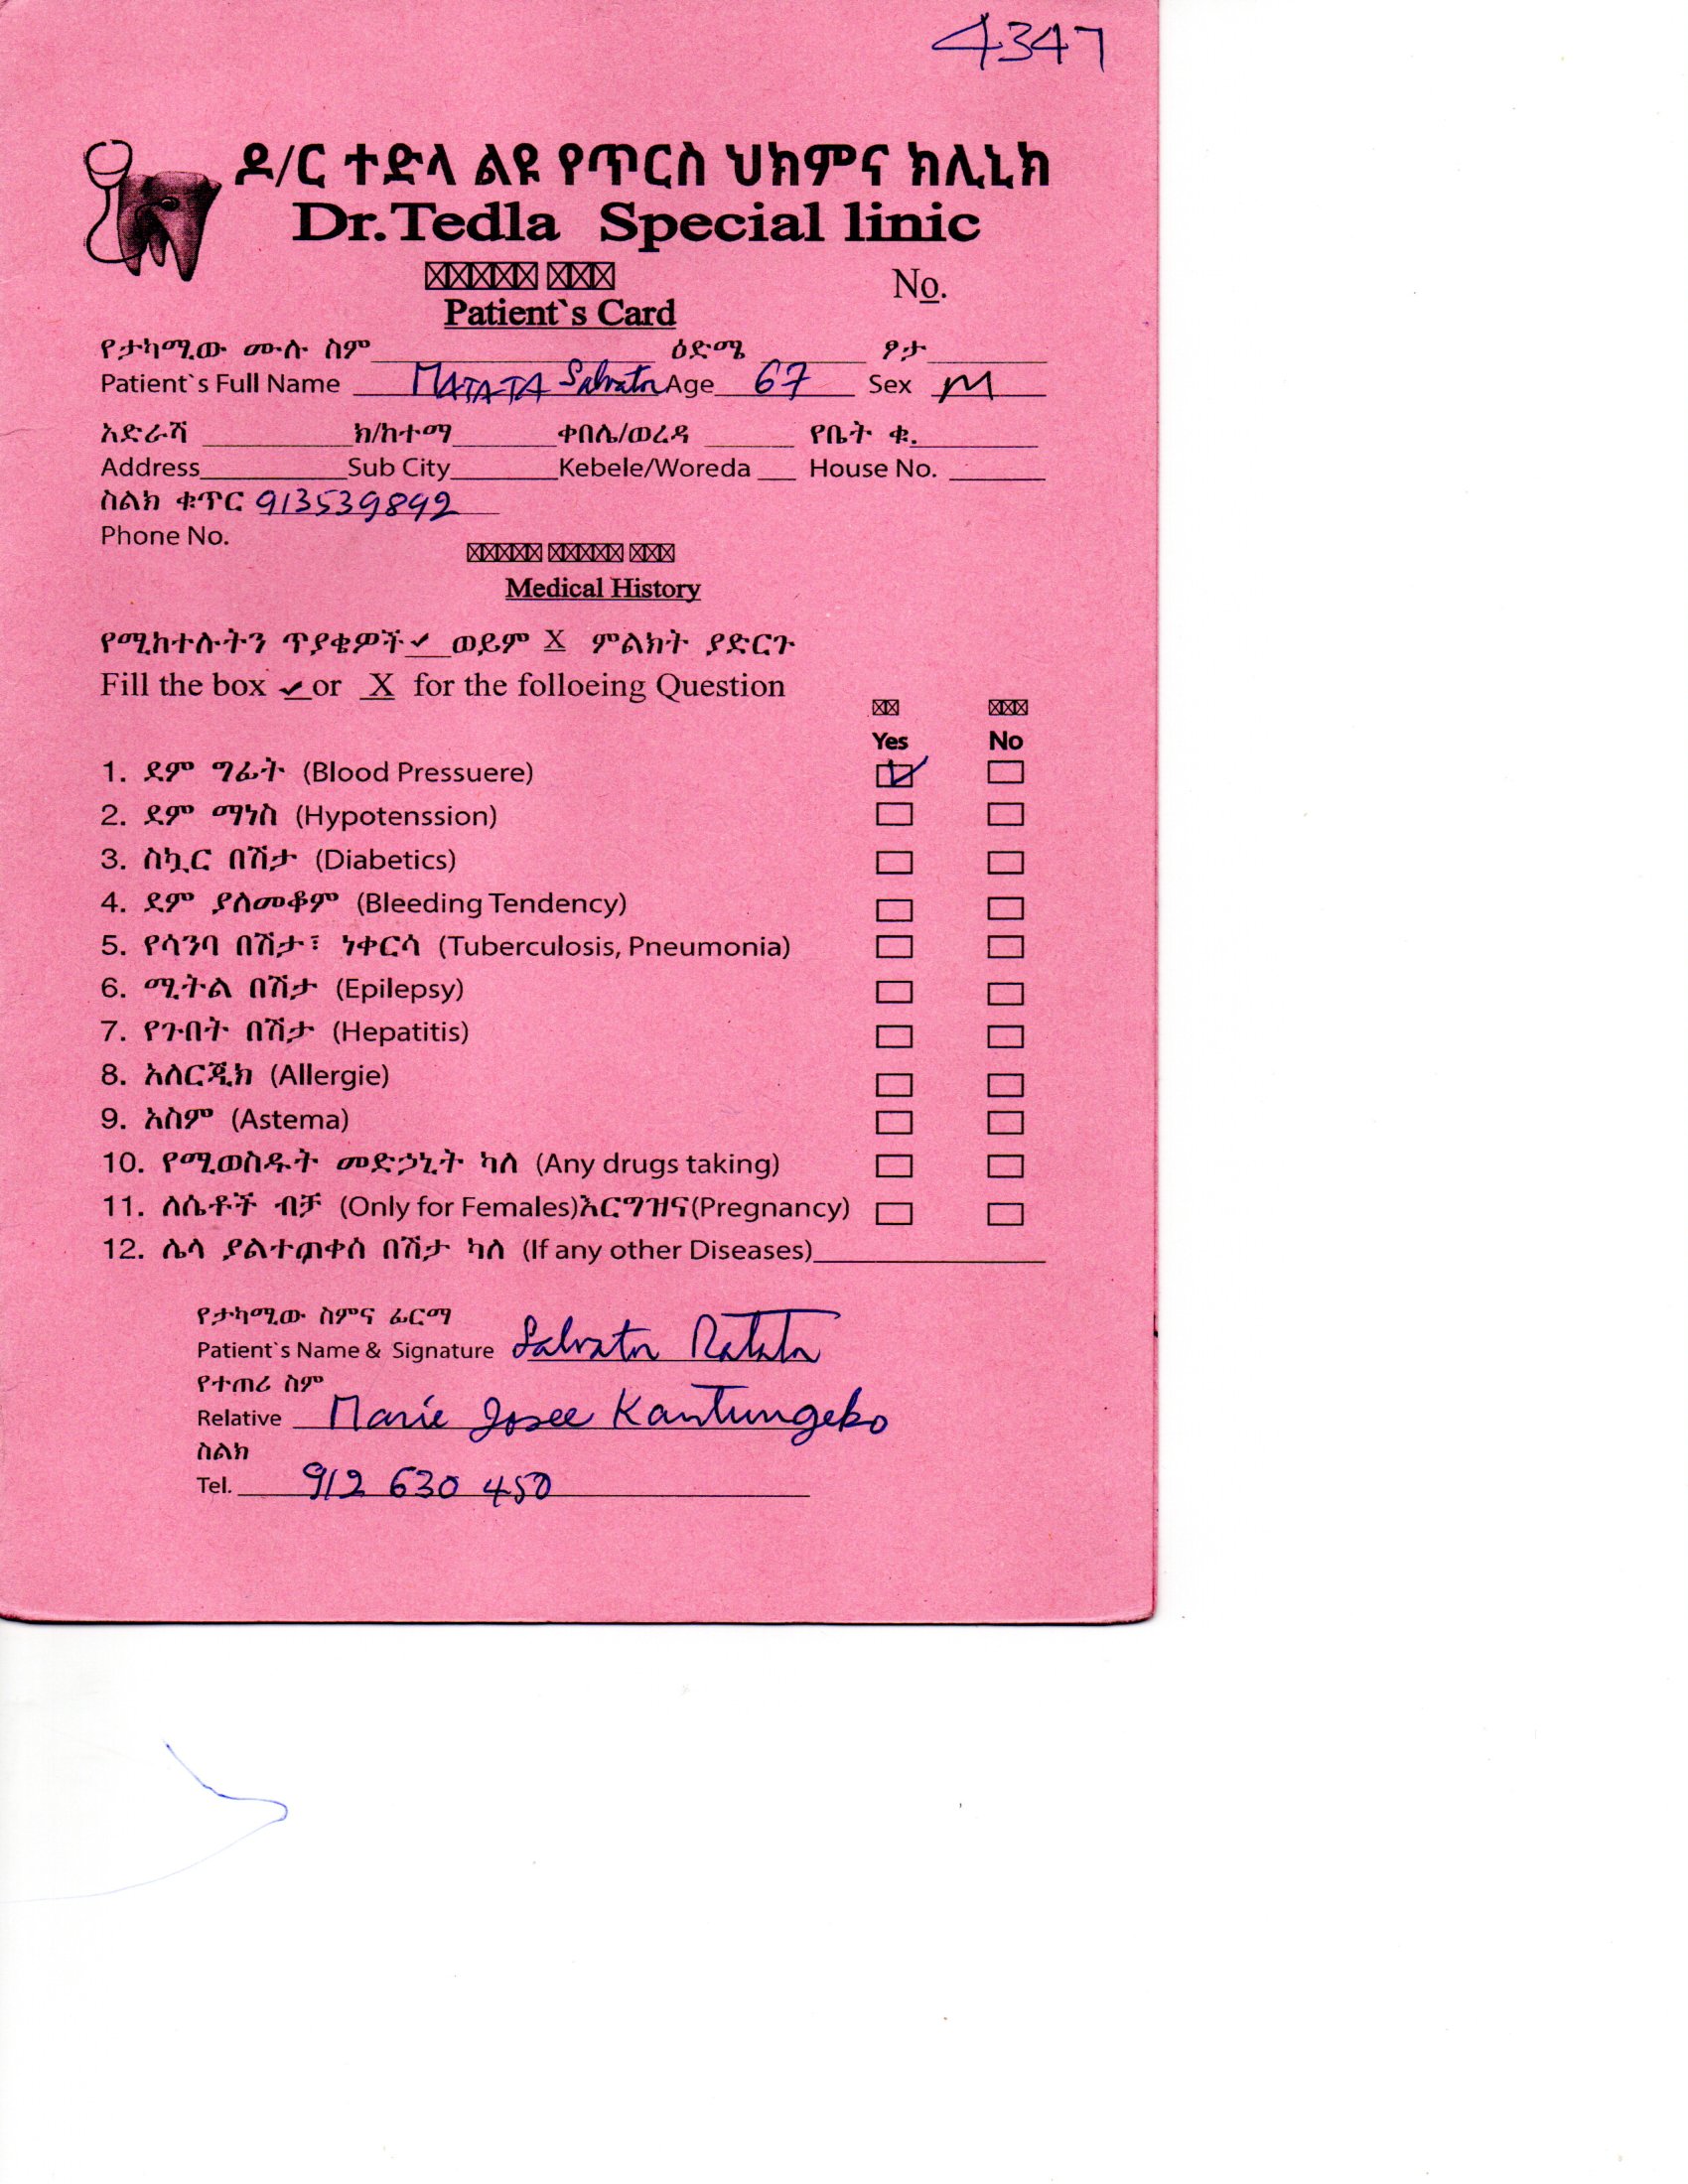 4347
ዶ/ር ተድላ ልዩ የጥርስ ህክምና ክሊኒክ
Dr.Tedla Special linic
No.
Patient`s Card
የታካሚው ሙሉ ስም ዕድሜ ፆታ
Patient`s Full Name MATATA Salvator Age 67 Sex M
አድራሻ ክ/ከተማ ቀበሌ/ወረዳ የቤት ቁ.
Address Sub City Kebele/Woreda House No.
ስልክ ቁጥር 913539892
Phone No.
Medical History
የሚከተሉትን ጥያቄዎች ✓ ወይም X ምልክት ያድርጉ
Fill the box ✓ or X for the folloeing Question
Yes No
1. ደም ግፊት (Blood Pressuere) ✓
2. ደም ማነስ (Hypotenssion)
3. ስኳር በሽታ (Diabetics)
4. ደም ያለመቆም (Bleeding Tendency)
5. የሳንባ በሽታ፣ ነቀርሳ (Tuberculosis, Pneumonia)
6. ሚትል በሽታ (Epilepsy)
7. የጉበት በሽታ (Hepatitis)
8. አለርጂክ (Allergie)
9. አስም (Astema)
10. የሚወስዱት መድኃኒት ካለ (Any drugs taking)
11. ለሴቶች ብቻ (Only for Females)እርግዝና(Pregnancy)
12. ሌላ ያልተጠቀሰ በሽታ ካለ (If any other Diseases)
የታካሚው ስምና ፊርማ
Patient`s Name & Signature Salvator Matata
የተጠሪ ስም
Relative Marie Josee Kantungeko
ስልክ
Tel. 912 630 450